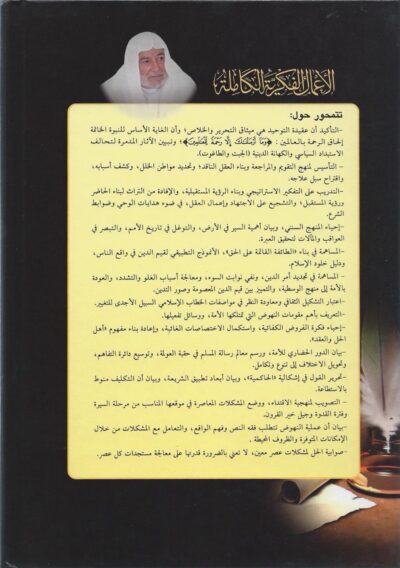 الأعمال الفكرية الكاملة
تتمحور حول:
-التأكيد أن عقيدة التوحيد هي ميثاق التحرير والخلاص؛ وأن الغاية الأساس للنبوة الخاتمة
إلحاق الرحمة بالعالمين: ﴿وَمَا أَرْسَلْنَاكَ إِلَّا رَحْمَةً لِلْعَالَمِينَ﴾؛ وتبيين الآثار المدمرة لتحالف
الاستبداد السياسي والكهانة الدينية (الجبت والطاغوت).
-التأسيس لمنهج التقويم والمراجعة وبناء العقل الناقد؛ وتحديد مواطن الخلل، وكشف أسبابه،
واقتراح سبل علاجه.
-التدريب على التفكير الاستراتيجي وبناء الرؤية المستقبلية، والإفادة من التراث لبناء الحاضر
ورؤية المستقبل؛ والتشجيع على الاجتهاد وإعمال العقل، في ضوء هدايات الوحي وضوابط
الشرع.
-إحياء المنهج السنني، وبيان أهمية السير في الأرض، والتوغل في تاريخ الأمم، والتبصر في
العواقب والمآلات لتحقيق العبرة.
-المساهمة في بناء «الطائفة القائمة على الحق»، الأنموذج التطبيقي لقيم الدين في واقع الناس،
ودليل خلود الإسلام.
- المساهمة في تجديد أمر الدين، ونفي نوابت السوء، ومعالجة أسباب الغلو والتشدد، والعودة
بالأمة إلى منهج الوسطية، والتمييز بين قيم الدين المعصومة وصور التدين.
-اعتبار التشكيل الثقافي ومعاودة النظر في مواصفات الخطاب الإسلامي السبيل الأجدى للتغيير.
-التعريف بأهم مقومات النهوض التي تمتلكها الأمة، ووسائل تفعيلها.
-إحياء فكرة الفروض الكفائية، واستكمال الاختصاصات الغائبة، وإعادة بناء مفهوم «أهل
الحل والعقد».
-بيان الدور الحضاري للأمة، ورسم معالم رسالة المسلم في حقبة العولمة، وتوسيع دائرة التفاهم،
وتحويل الاختلاف إلى تنوع وتكامل.
-تحرير القول في إشكالية «الحاكمية»، وبيان أبعاد تطبيق الشريعة، وبيان أن التكليف منوط
بالاستطاعة.
- التصويب لمنهجية الاقتداء، ووضع المشكلات المعاصرة في موقعها المناسب من مرحلة السيرة
وفترة القدوة وجيل خير القرون.
-بيان أن عملية النهوض تتطلب فقه النص وفهم الواقع، والتعامل مع المشكلات من خلال
الإمكانات المتوفرة والظروف المحيطة.
-صوابية الحل لمشكلات عصر معين، لا تعني بالضرورة قدرتها على معالجة مستجدات كل عصر.